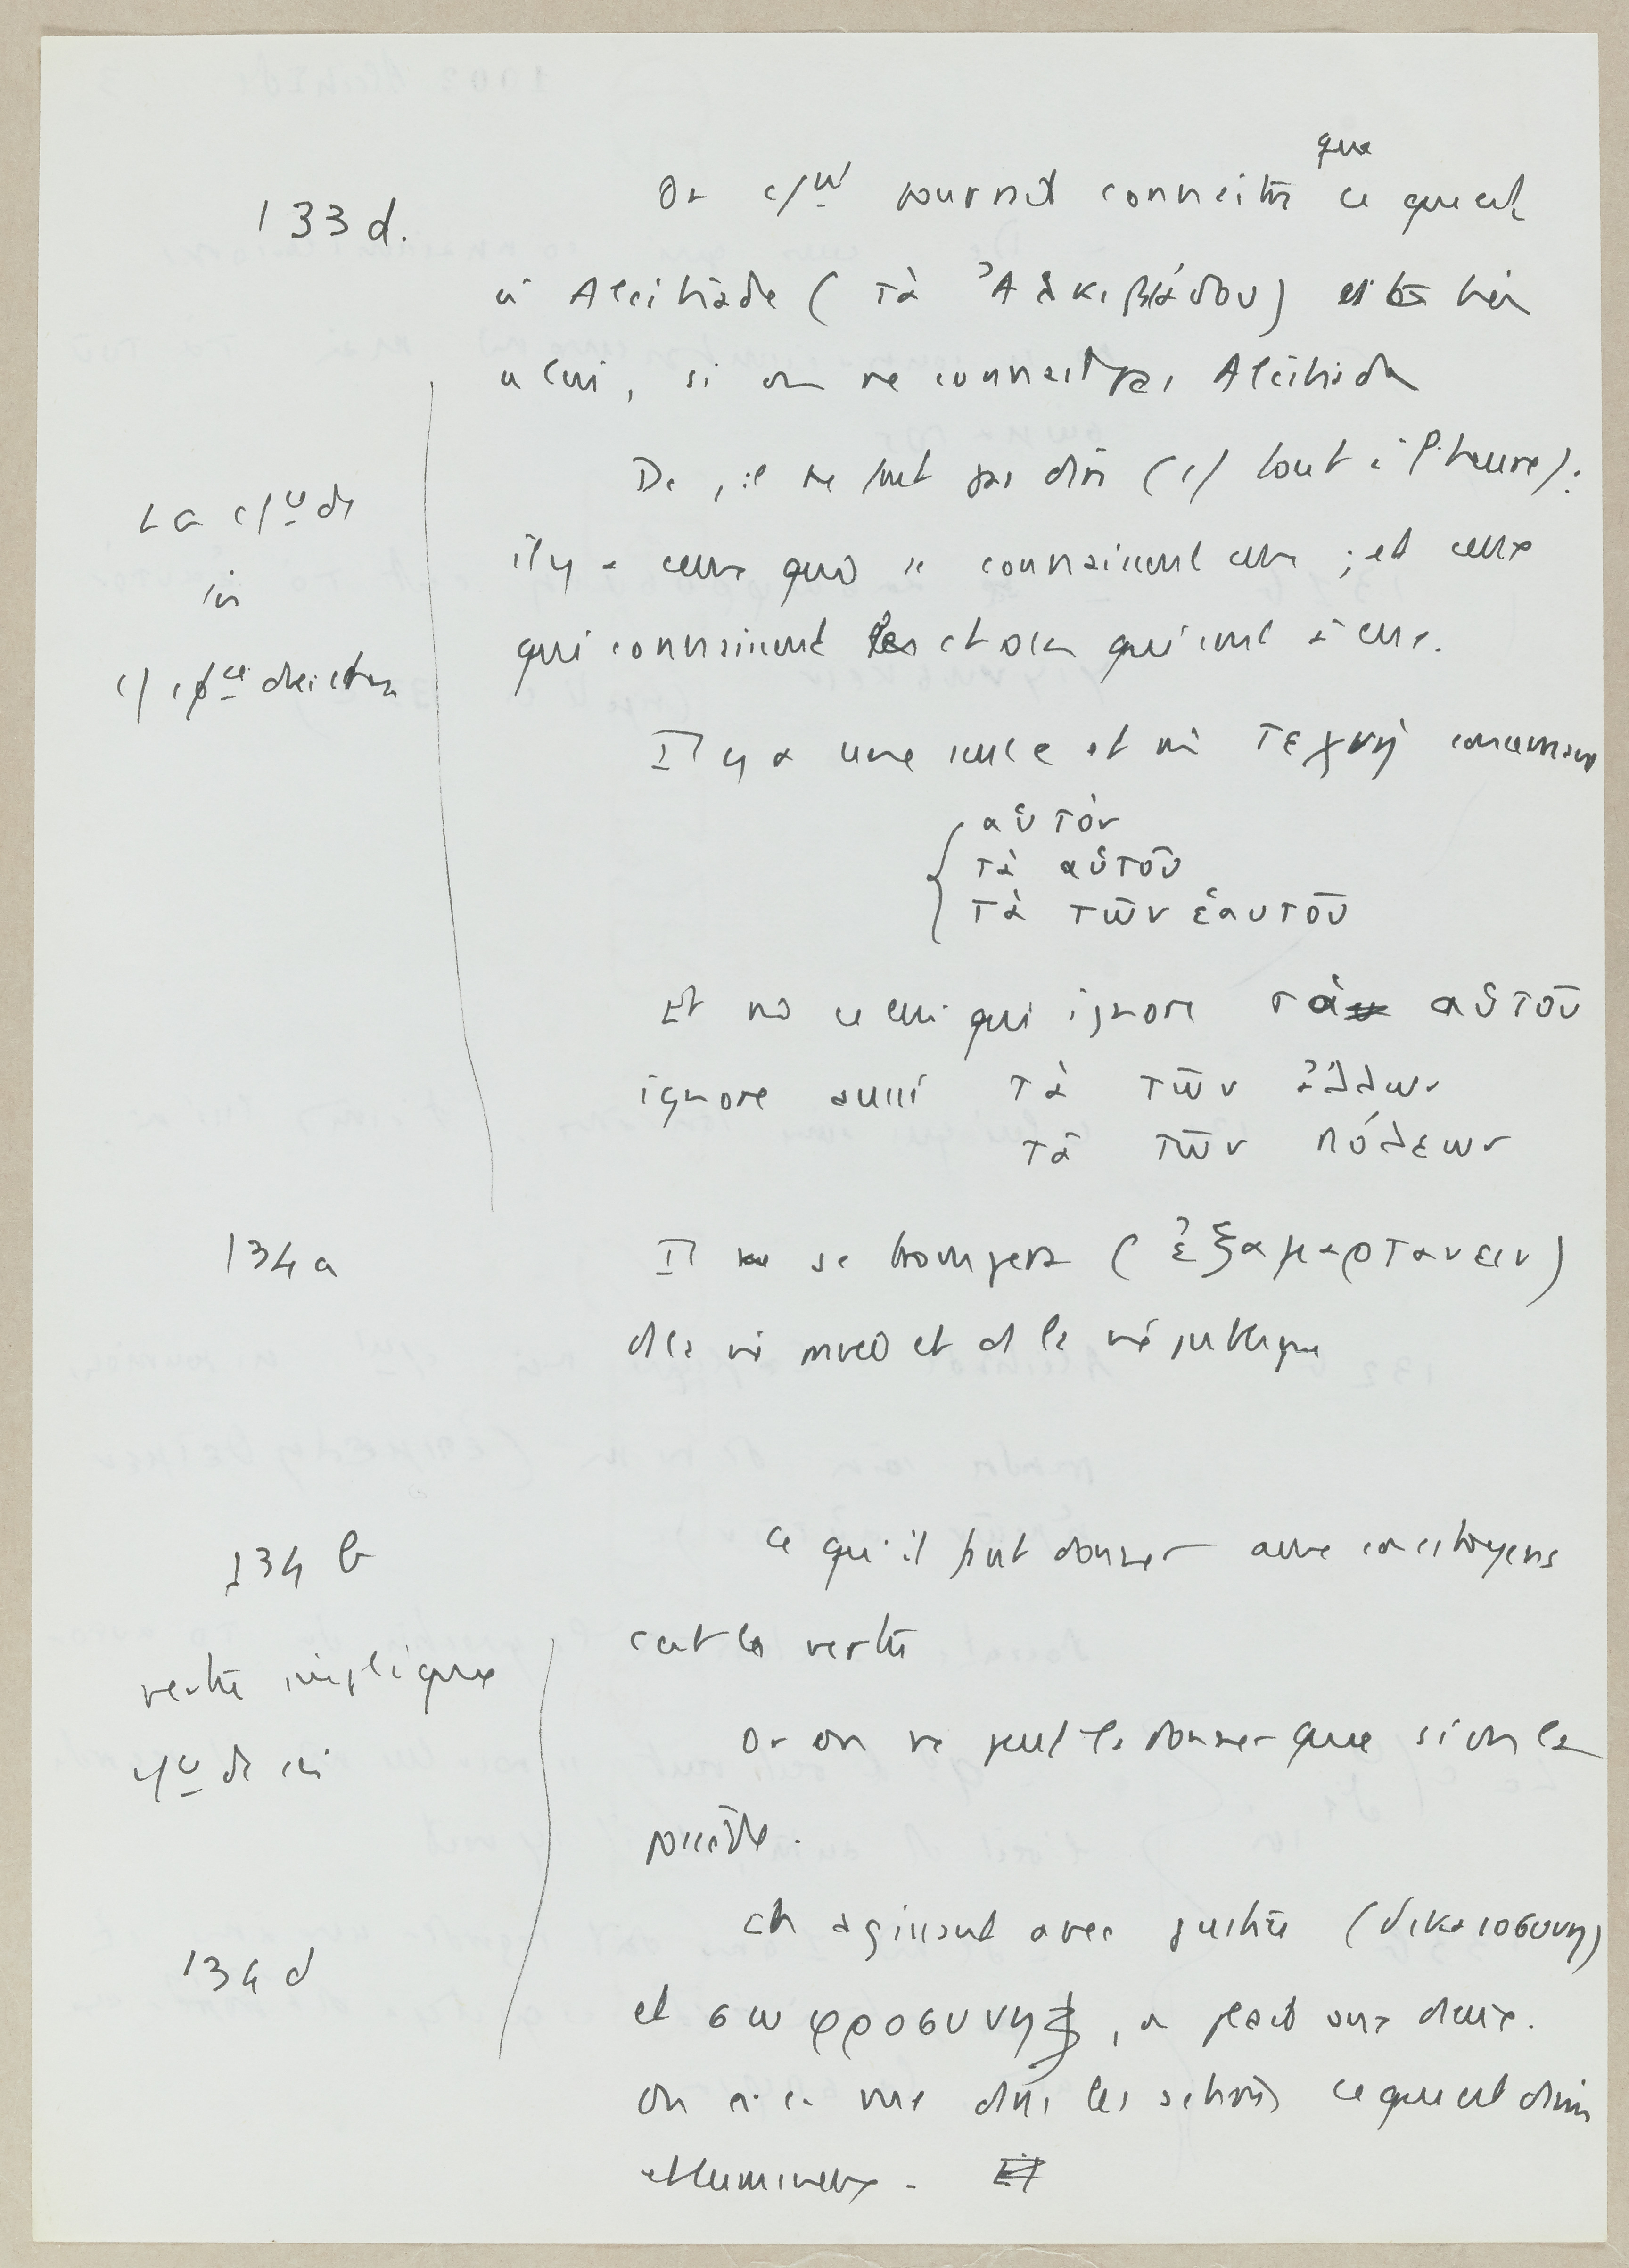 133 d.
Or c/ᵗ pourrait connaitre que ce qui est
à Alcibiade (τὰ Ἀλκιβιάδου) est bien
a lui, si on ne connait pas Alcibiade
Dc, il ne faut pas dire (c/ tout à l'heure):
La c/ᵘ de
soi
il y a ceux qui se connaissent eux ; et ceux
qui connaissent les choses qui sont à eux.
c/ des choses
Il y a une seule et mê τεχνὴ concernant
αὑτόν
τὰ αὑτοῦ
τὰ τῶν ἑαυτοῦ
Et celui qui ignore τὰ αὑτοῦ
ignore aussi τὰ τῶν ἄλλων
τὰ τῶν πόλεων
134 a
Il se trompera (ἐξαμαρτανειν)
d la vie privée et d la vie publique
134 b
Ce qu'il faut donner aux concitoyens
c'est la vertu
vertu implique
c/ᵘ de soi
Or on ne peut la donner que si on la
possède.
134 d
En agissant avec justice (δικαιοσυνη)
et σωφροσυνη, on plait aux dieux.
On a en vue dans les actions ce qui est divin
et lumineux.